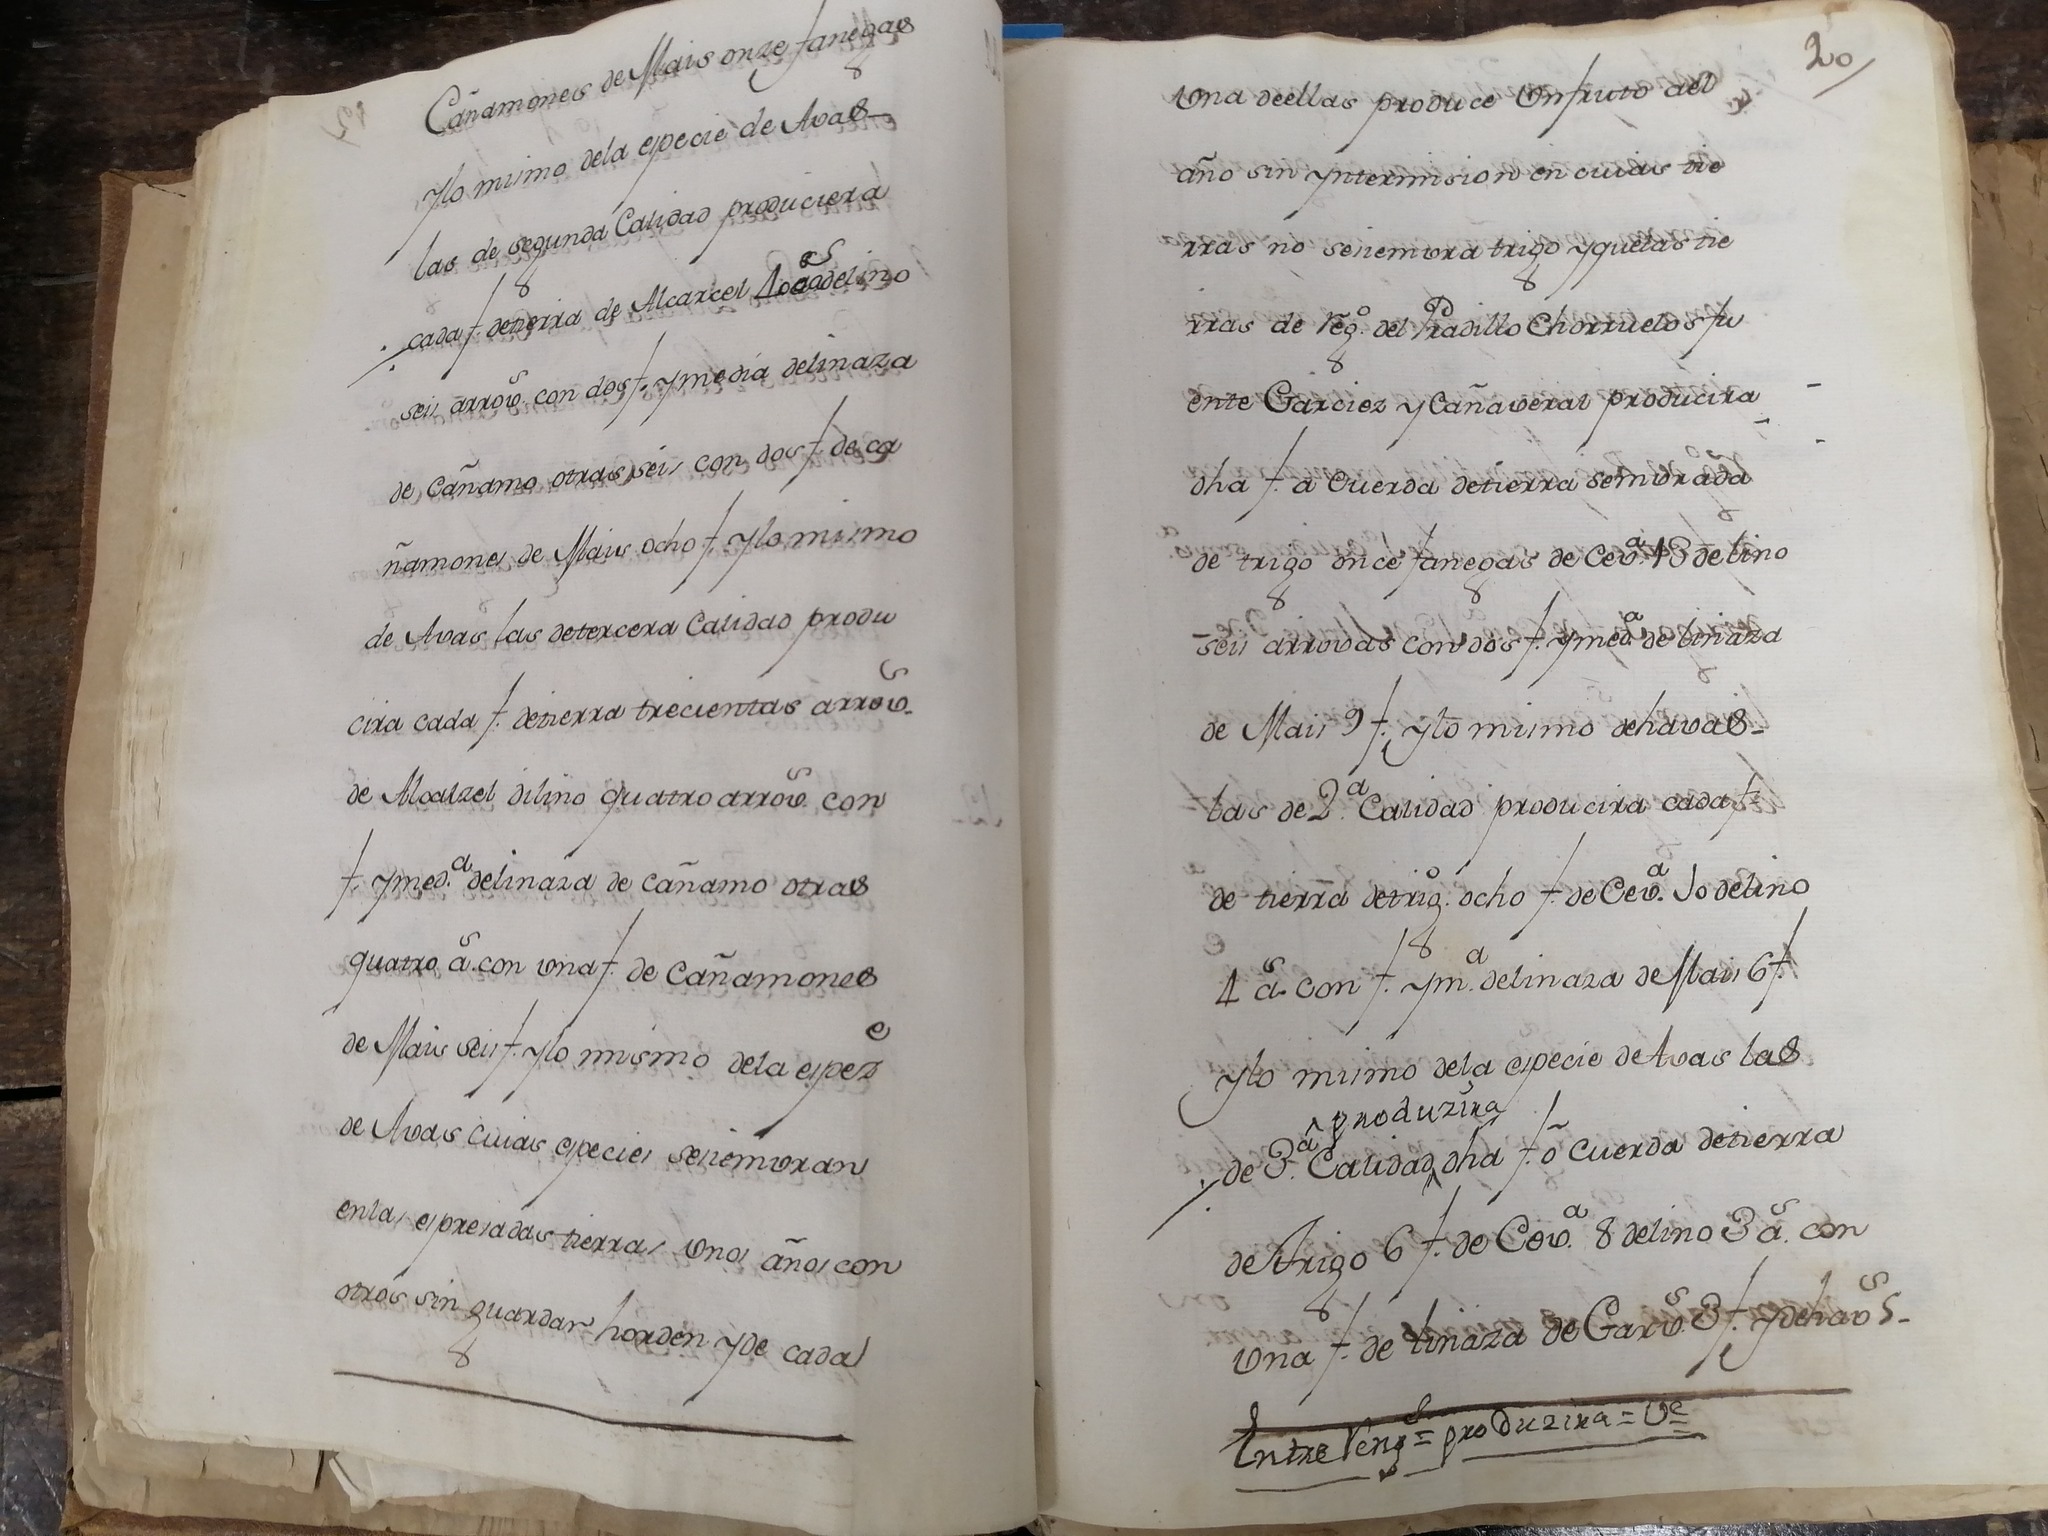 Cañamones de Mais onze fanegas
ylo mismo dela especie de Avas
las de segunda Calidad produciera
cada f. detierra de Alcarcel 400 as. delino
seis arrovs. con dos f. y media delinaza
de cañamo otras seis con dos f. de ca
ñamones de Mais ocho f. ylo mismo
de Avas las detercera Calidad produ
cira cada f. detierra trecientas arrovs.
de Alcalzel dilino quatro arrovs. con
f. ymeda. delinaza de cañamo otras
quatro as. con vna f. de cañamones
de Mais seis f. ylo mismo dela espeze
de Avas cuias especies sesiemvran
enlas espresadas tierras vnos años con
otros sin guardar horden yde cada
20
vna deellas produce vn fruto al
año sin yntermision en cuias tie
rras no sesiemvra trigo yquelas tie
rras de rego. del Pradillo Chorruelos fu
ente Garciez y Cañaveral producira
dha f. a Cuerda detierra semvrada
de trigo once fanegas de Ceva. 13 delino
seis arrovas con dos f. ymeda. de linaza
de Mais 9 f. ylo mismo dehavas
las de 2a. Calidad producira cada f.
de tierra detrigo. ocho f. de Ceva. 10 delino
4 as. con f. yma. delinaza de Mais 6 f.
ylo mismo dela especie deAvas las
produzira
de 3a. Calidad dha f. o cuerda detierra
de trigo 6 f. de Ceva. 8 delino 3 as. con
vna f. de linaza de Garvs. 3 f. ydehavs 5
Entre Reng.s = produzira = Ve